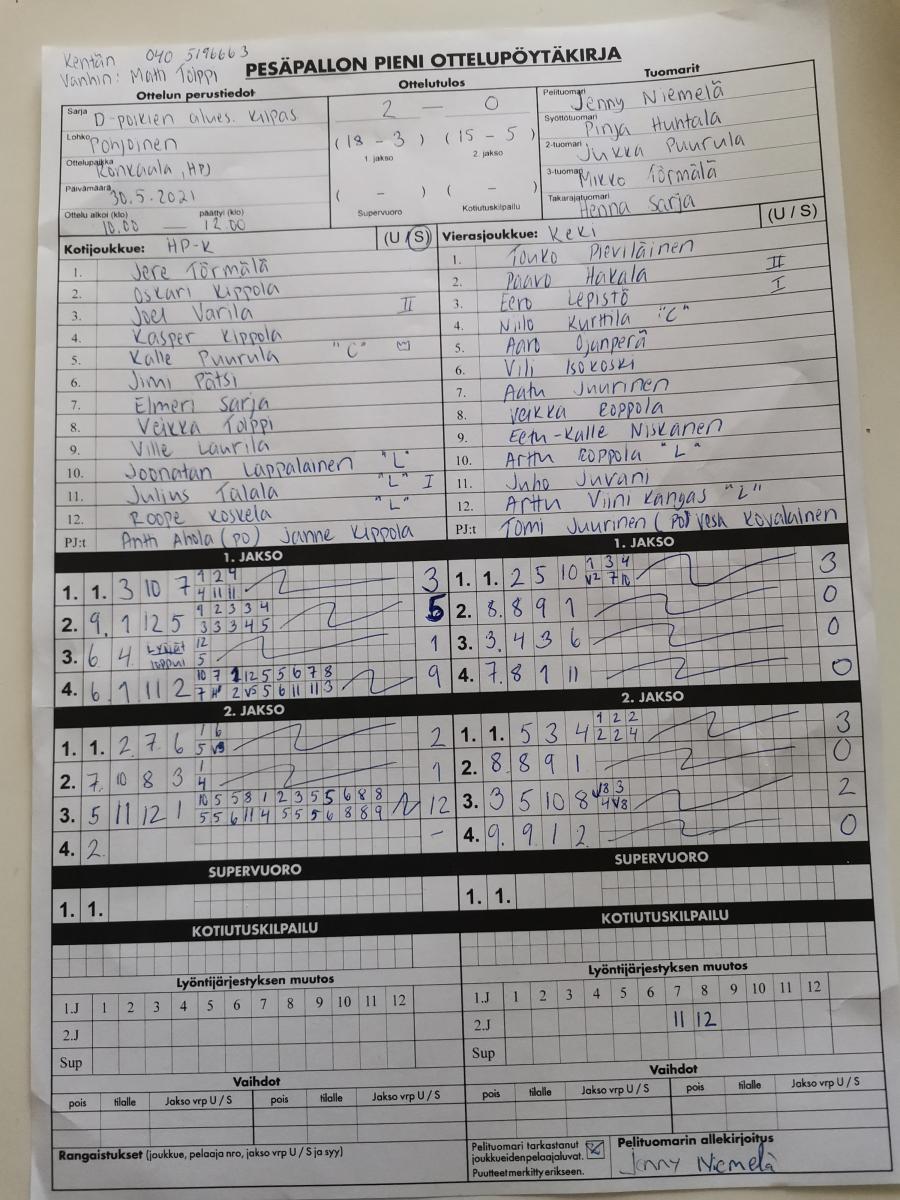 Kentän 040 5196663
Vanhin: Matti Tolppi
PESÄPALLON PIENI OTTELUPÖYTÄKIRJA
Ottelun perustiedot
Sarja D-poikien alues. kilpas
Lohko Pohjoinen
Ottelupaikka Ronkaala, HPJ
Päivämäärä 30.5.2021
Ottelu alkoi (klo) päättyi (klo)
10.00 — 12.00
Ottelutulos
2 — 0
(18 - 3) (15 - 5)
1. jakso 2. jakso
( - ) ( - )
Supervuoro Kotiutuskilpailu
Tuomarit
Pelituomari Jenny Niemelä
Syöttötuomari Pinja Huhtala
2-tuomari Jukka Puurula
3-tuomari Mikko Törmälä
Takarajatuomari Henna Sarja
Kotijoukkue: HP-K (U / S)
1. Jere Törmälä
2. Oskari Kippola
3. Joel Varila II
4. Kasper Kippola
5. Kalle Puurula "C"
6. Jimi Pätsi
7. Elmeri Sarja
8. Veikka Tolppi
9. Ville Laurila
10. Joonatan Lappalainen "L"
11. Julius Talala "L" I
12. Roope Koskela "L"
PJ:t Antti Ahola (PO) Janne Kippola
Vierasjoukkue: KeKi (U / S)
1. Touko Pieviläinen
2. Paavo Hakala II
3. Eero Lepistö I
4. Niilo Kurttila "C"
5. Aaro Ojanperä
6. Vili Isokoski
7. Aatu Juurinen
8. Veikka Roppola
9. Eetu-Kalle Niskanen
10. Arttu Roppola "L"
11. Juho Juvani
12. Arttu Viinikangas "L"
PJ:t Tomi Juurinen (PO) Vesa Kovalainen
1. JAKSO
1. 1. 3 10 7 1 2 4 3
4 11 11
2. 9. 1 12 5 1 2 3 3 4 5
3 3 3 4 5
3. 6 4 Lyöjät loppui 12 1
5
4. 6 1 11 2 10 7 1 12 5 5 6 7 8 9
7 2 V5 5 6 11 11 3
2. JAKSO
1. 1. 2 7 6 1 6 2
5 V3
2. 7. 10 8 3 1 1
4
3. 5 11 12 1 10 5 5 8 1 2 3 5 5 6 8 8 12
5 5 6 11 4 5 5 5 6 8 8 9
4. 2 -
SUPERVUORO
1. 1.
KOTIUTUSKILPAILU
Lyöntijärjestyksen muutos
1.J 1 2 3 4 5 6 7 8 9 10 11 12
2.J
Sup
Vaihdot
pois tilalle Jakso vrp U / S pois tilalle Jakso vrp U / S
Rangaistukset (joukkue, pelaaja nro, jakso vrp U / S ja syy)
1. JAKSO
1. 1. 2 5 10 1 3 4 3
V2 7 10
2. 8. 8 9 1 0
3. 3. 4 3 6 0
4. 7. 8 1 11 0
2. JAKSO
1. 1. 5 3 4 1 2 2 3
2 2 4
2. 8. 8 9 1 0
3. 3 5 10 8 V8 3 2
4 V8
4. 9. 9 1 2 0
SUPERVUORO
1. 1.
KOTIUTUSKILPAILU
Lyöntijärjestyksen muutos
1.J 1 2 3 4 5 6 7 8 9 10 11 12
2.J 11 12
Sup
Vaihdot
pois tilalle Jakso vrp U / S pois tilalle Jakso vrp U / S
Pelituomari tarkastanut
joukkueiden pelaajaluvat.
Puutteet merkitty erikseen.
Pelituomarin allekirjoitus
Jenny Niemelä